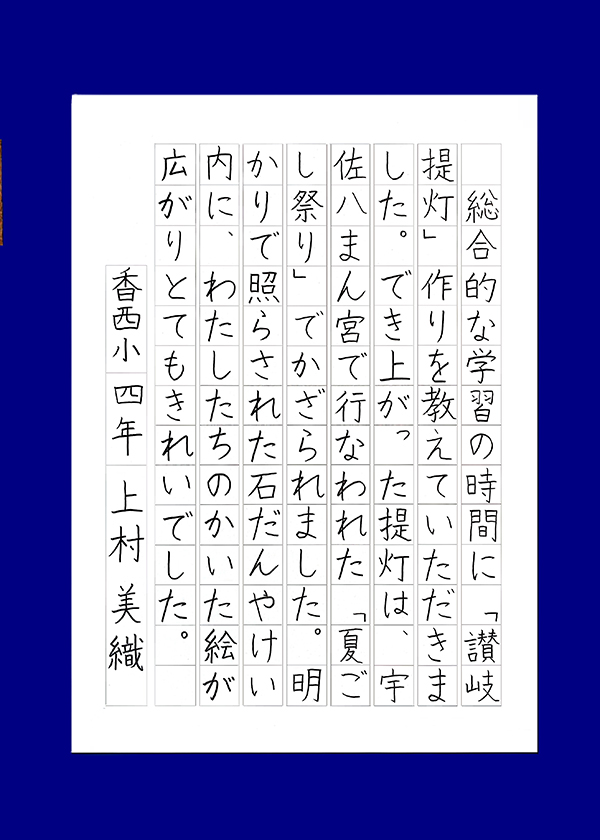 総合的な学習の時間に「讃岐
提灯」作りを教えていただきま
した。でき上がった提灯は、宇
佐八まん宮で行なわれた「夏ご
し祭り」でかざられました。明
かりで照らされた石だんやけい
内に、わたしたちのかいた絵が
広がりとてもきれいでした。
香西小 四年 上村 美織